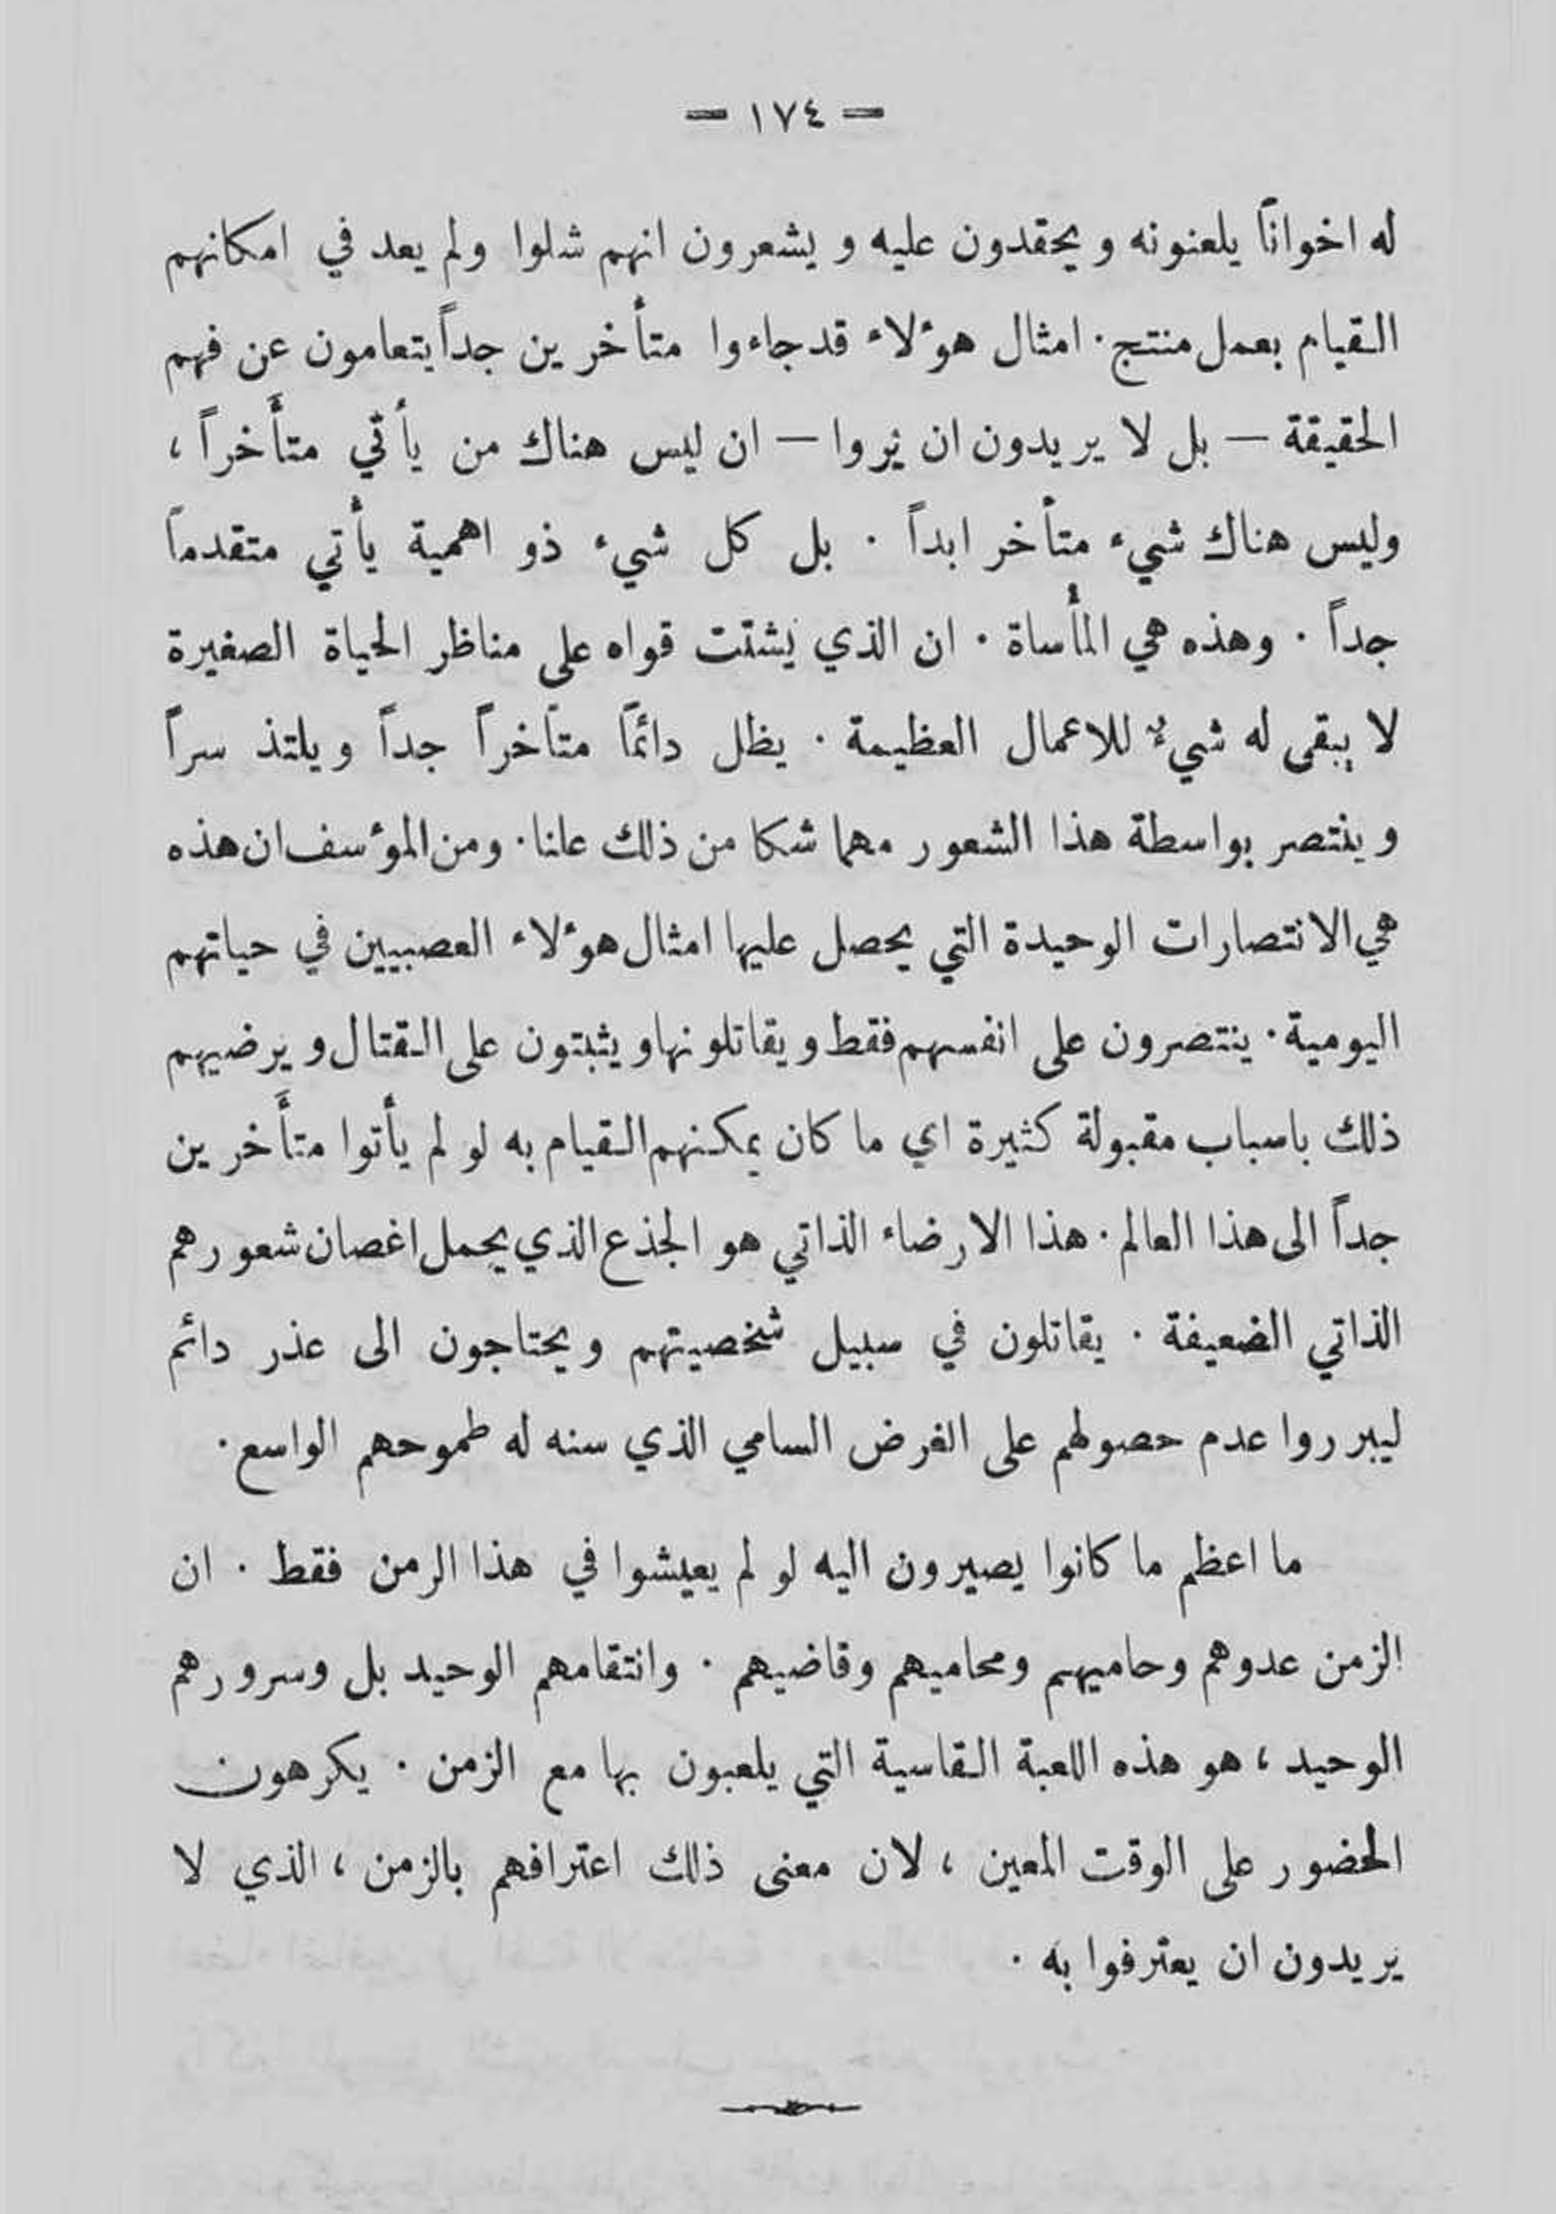 — ١٧٤ —
له اخواناً يلعنونه ويحقدون عليه ويشعرون انهم شلوا ولم يعد في امكانهم
القيام بعمل منتج . امثال هؤلاء قد جاءوا متأخرين جداً يتعامون عن فهم
الحقيقة — بل لا يريدون ان يروا — ان ليس هناك من يأتي متأخراً ،
وليس هناك شيء متأخر ابداً . بل كل شيء ذو اهمية يأتي متقدماً
جداً . وهذه هي المأساة . ان الذي يشتت قواه على مناظر الحياة الصغيرة
لا يبقى له شيءٌ للاعمال العظيمة . يظل دائماً متأخراً جداً ويلتذ سراً
وينتصر بواسطة هذا الشعور مهما شكا من ذلك علنا . ومن المؤسف ان هذه
هي الانتصارات الوحيدة التي يحصل عليها امثال هؤلاء العصبيين في حياتهم
اليومية . ينتصرون على انفسهم فقط ويقاتلونها ويثبتون على القتال ويرضيهم
ذلك باسباب مقبولة كثيرة اي ما كان يمكنهم القيام به لو لم يأتوا متأخرين
جداً الى هذا العالم . هذا الارضاء الذاتي هو الجذع الذي يحمل اغصان شعورهم
الذاتي الضعيفة . يقاتلون في سبيل شخصيتهم ويحتاجون الى عذر دائم
ليبرروا عدم حصولهم على الغرض السامي الذي سنه له طموحهم الواسع .
ما اعظم ما كانوا يصيرون اليه لو لم يعيشوا في هذا الزمن فقط . ان
الزمن عدوهم وحاميهم ومحاميهم وقاضيهم . وانتقامهم الوحيد بل وسرورهم
الوحيد ، هو هذه اللعبة القاسية التي يلعبون بها مع الزمن . يكرهون
الحضور على الوقت المعين ، لان معنى ذلك اعترافهم بالزمن ، الذي لا
يريدون ان يعترفوا به .